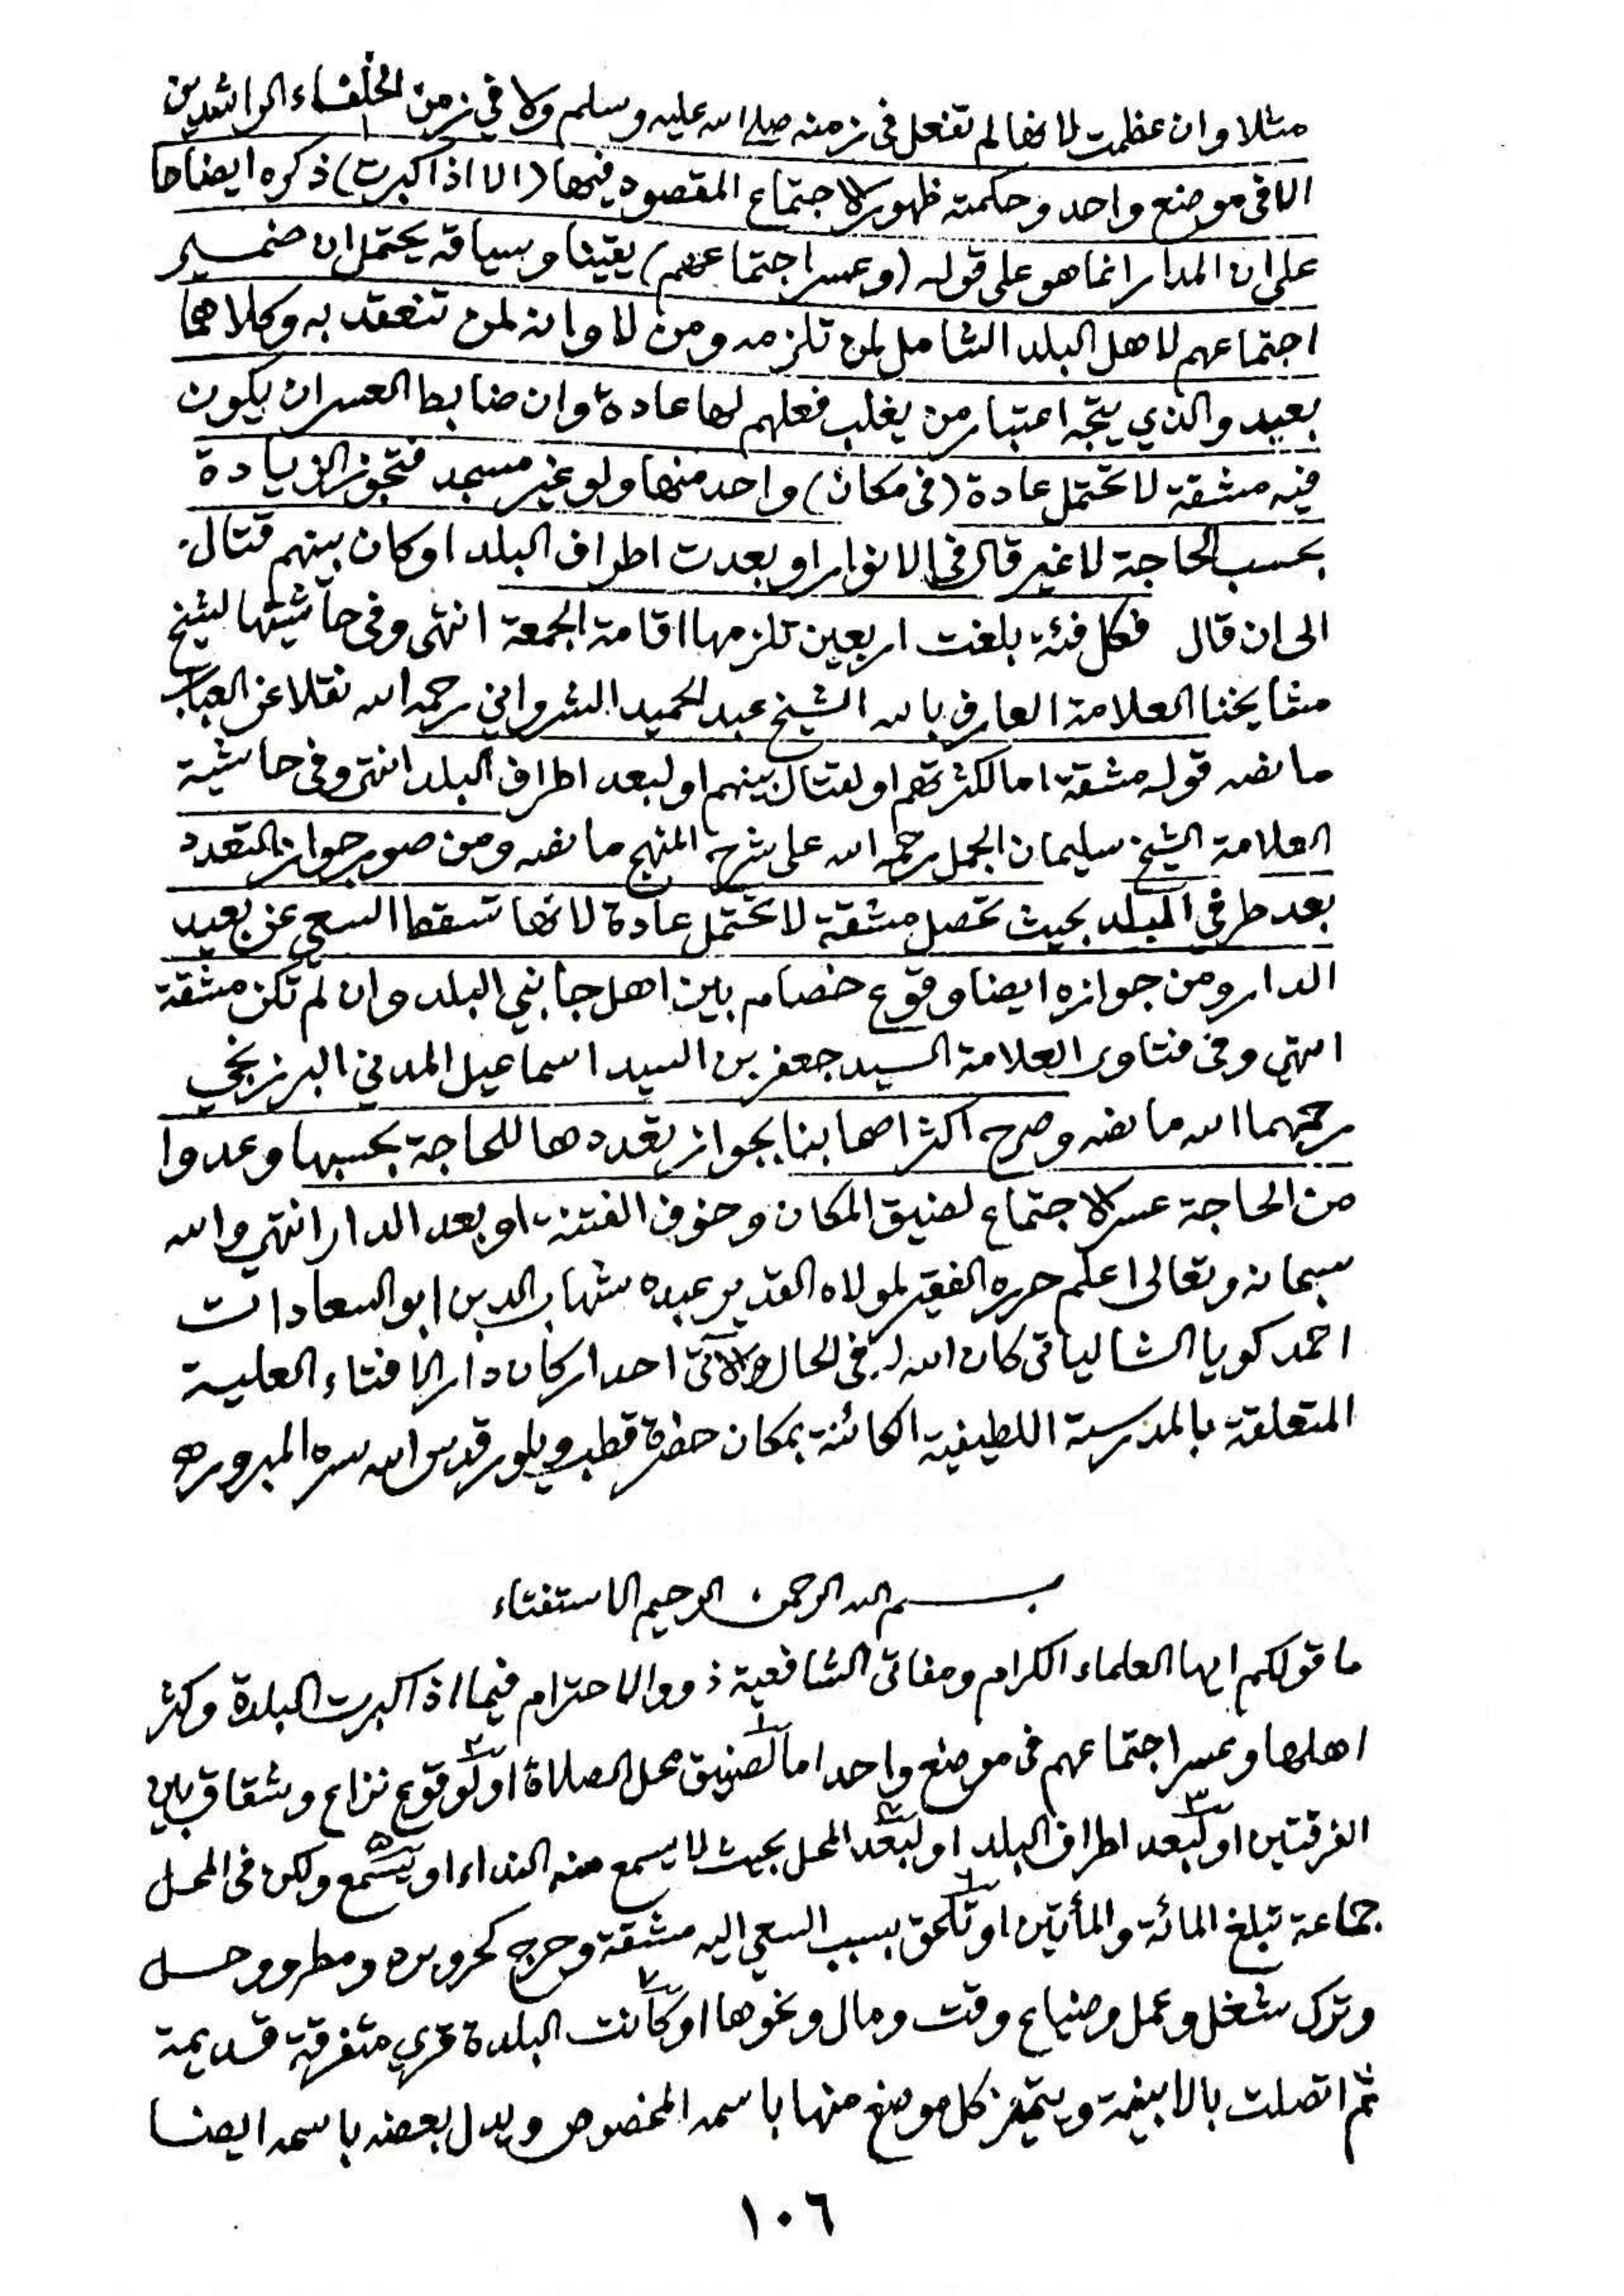 مثلا وان عظمت لانها لم تفعل فى زمنه صلى الله عليه وسلم ولا في زمن الخلفاء الراشدين
الا فى موضع واحد وحكمته ظهور الاجتماع المقصود فيها (الا اذا كبرت) ذكره ايضاحا
على ان المدار انما هو على قوله (وعسر اجتماعهم) يقينا وسياقه يحتمل ان ضمير
اجتماعهم لاهل البلد الشامل لمن تلزمه ومن لا وانه لمن تنعقد به وكلاهما
بعيد والذي يتجه اعتبار من يغلب فعلهم لها عادة وان ضابط العسر ان يكون
فيه مشقة لا تحتمل عادة (فى مكان) واحد منها ولو غير مسجد فتجوز الزيادة
بحسب الحاجة لا غير قال فى الانوار او بعدت اطراف البلد او كان بينهم قتال
الى ان قال فكل فئة بلغت اربعين تلزمها اقامة الجمعة انتهى وفى حاشيتها لشيخ
مشايخنا العلامة العارف بالله الشيخ عبد الحميد الشرواني رحمه الله نقلا عن العباب
ما نصه قوله مشقة اما لكثرتهم او لقتال بينهم او لبعد اطراف البلد انتهى وفى حاشية
العلامة الشيخ سليمان الجمل رحمه الله على شرح المنهج ما نصه ومن صور جواز التعدد
بعد طرفي البلد بحيث تحصل مشقة لا تحتمل عادة لانها تسقط السعي عن بعيد
الدار ومن جوازه ايضا وقوع خصام بين اهل جانبي البلد وان لم تكن مشقة
انتهي وفى فتاوى العلامة السيد جعفر بن السيد اسماعيل المدني البرزنجي
رحمهما الله ما نصه وصرح اكثر اصحابنا بجواز تعددها للحاجة بحسبها وعدوا
من الحاجة عسر الاجتماع لضيق المكان وخوف الفتنة او بعد الدار انتهي والله
سبحانه وتعالى اعلم حرره الفقير لمولاه القدير عبده شهاب الدين ابو السعادات
احمد كويا الشالياتى كان الله له فى الحال والاتى احد اركان دار الافتاء العلية
المتعلقة بالمدرسة اللطيفية الكائنة بمكان حضرة قطب ويلور قدس الله سره المبرور ه
بسم الله الرحمن الرحيم الاستفتاء
ما قولكم ايها العلماء الكرام ومفاتى الشافعية ذووا الاحترام فيما اذا كبرت البلدة وكثر
اهلها وعسر اجتماعهم فى موضع واحد اما لضيق محل الصلاة او لوقوع نزاع وشقاق بين
الفرقتين او لبعد اطراف البلد او لبعد المحل بحيث لا يسمع منه النداء او يسمع ولكن فى المحل
جماعة تبلغ المائة والمأتين او تلحق بسبب السعي اليه مشقة وحرج كحر وبرد ومطر ووحل
وترك شغل وعمل وضياع وقت ومال ونحوها او كانت البلدة قرى متفرقة قديمة
ثم اتصلت بالابنية ويتميز كل موضع منها باسمه المخصوص ويدل بعضه باسمه ايضا
١٠٦